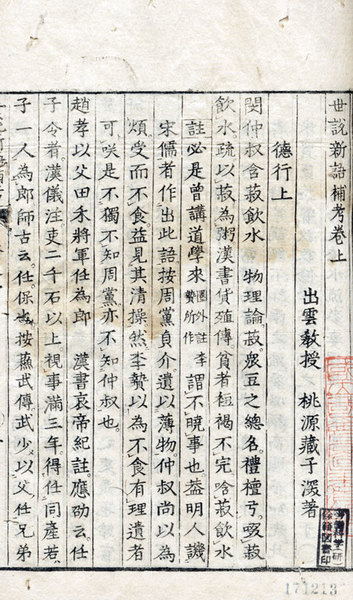 世說新語補考卷上
出雲教授 桃源藏子深著
德行上
閔仲叔含菽飲水 物理論菽眾豆之總名禮檀弓啜菽
飲水疏以菽為粥漢書貨殖傳貧者裋褐不完唅菽飲水
註必是曾講道學來 圈外註李贄所作 謂不曉事也益明人譏
宋儒者作出此語按周黨貞介遺以薄物仲叔尚以為
煩受而不食益見其清操然李贄以為不食有理遺者
可咲是不獨不知周黨亦不知仲叔也
趙孝以父田禾將軍任為郎 漢書哀帝紀註應劭云任
子令者漢儀注吏二千石以上視事滿三年得任同產若
子一人為郎師古云任保也按蘇武傳武少以父任兄弟
171213